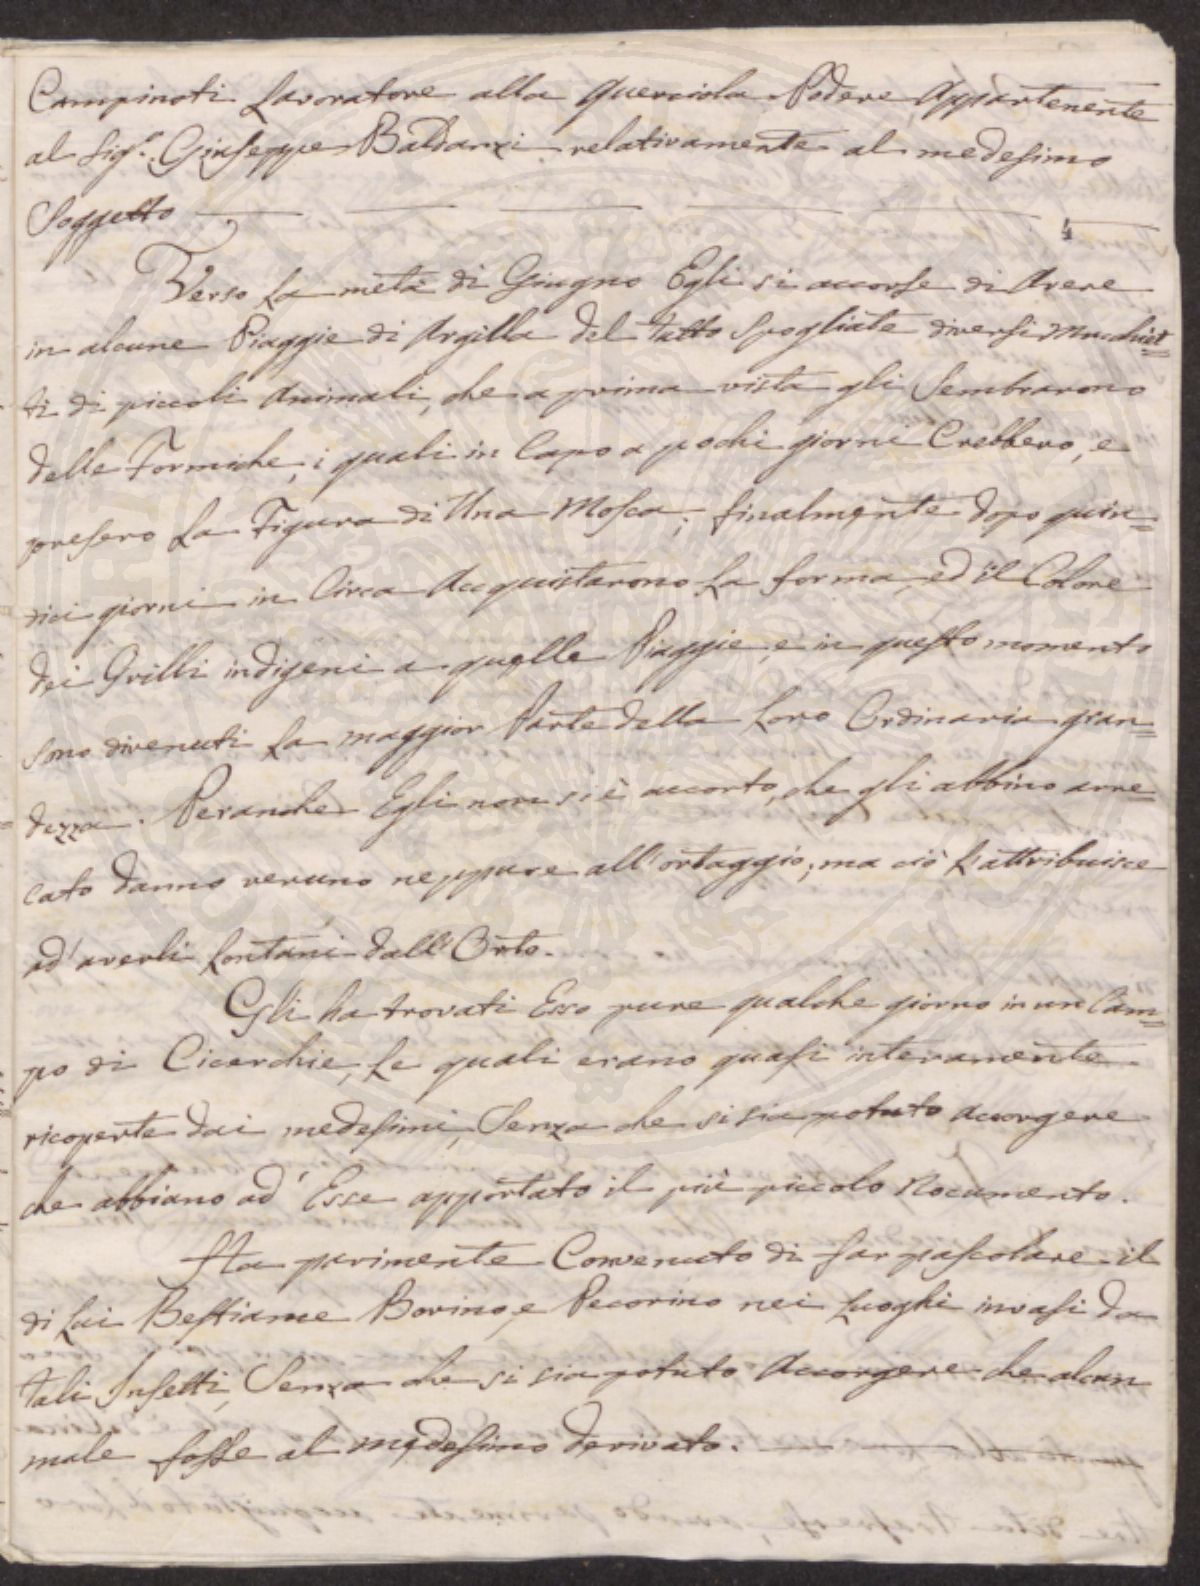 Campinoti Lavoratore alla Querciola Podere Appartenente
al Sig.r Giuseppe Baldanzi relativamente al medesimo
Soggetto
Verso la metà di Giugno Egli si accorse di Avere
in alcune Piaggie di Argilla del Tutto Spogliate diversi Mucchiet=
ti di piccoli Animali, che a prima vista gli Sembrarono
delle Formiche, i quali in Capo a pochi giorni Crebbero, e
presero la Figura di Una Mosca; finalmente dopo quin=
dici giorni in Circa Acquistarono la forma, ed il Colore
dei Grilli indigeni a quelle Piaggie, e in questo momento
sono divenuti la maggior Parte della Loro Ordinaria gran=
dezza. Peranche Egli non si è accorto, che gli abbino arre=
cato danno veruno neppure all'ortaggio; ma ciò l'attribuisce
ad' averli lontani dall'Orto.
Gli ha trovati Esso pure qualche giorno in un Cam=
po di Cicerchie, le quali erano quasi interamente
ricoperte dai medesimi, Senza che si sia potuto accorgere
che abbiano ad' Esse apportato il più piccolo Nocumento.
Ha parimente Convenuto di far pascolare il
di Lui Bestiame Bovino, e Pecorino nei Luoghi invasi da
tali Insetti, Senza che si sia potuto Accorgere che alcun
male fosse al medesimo derivato.